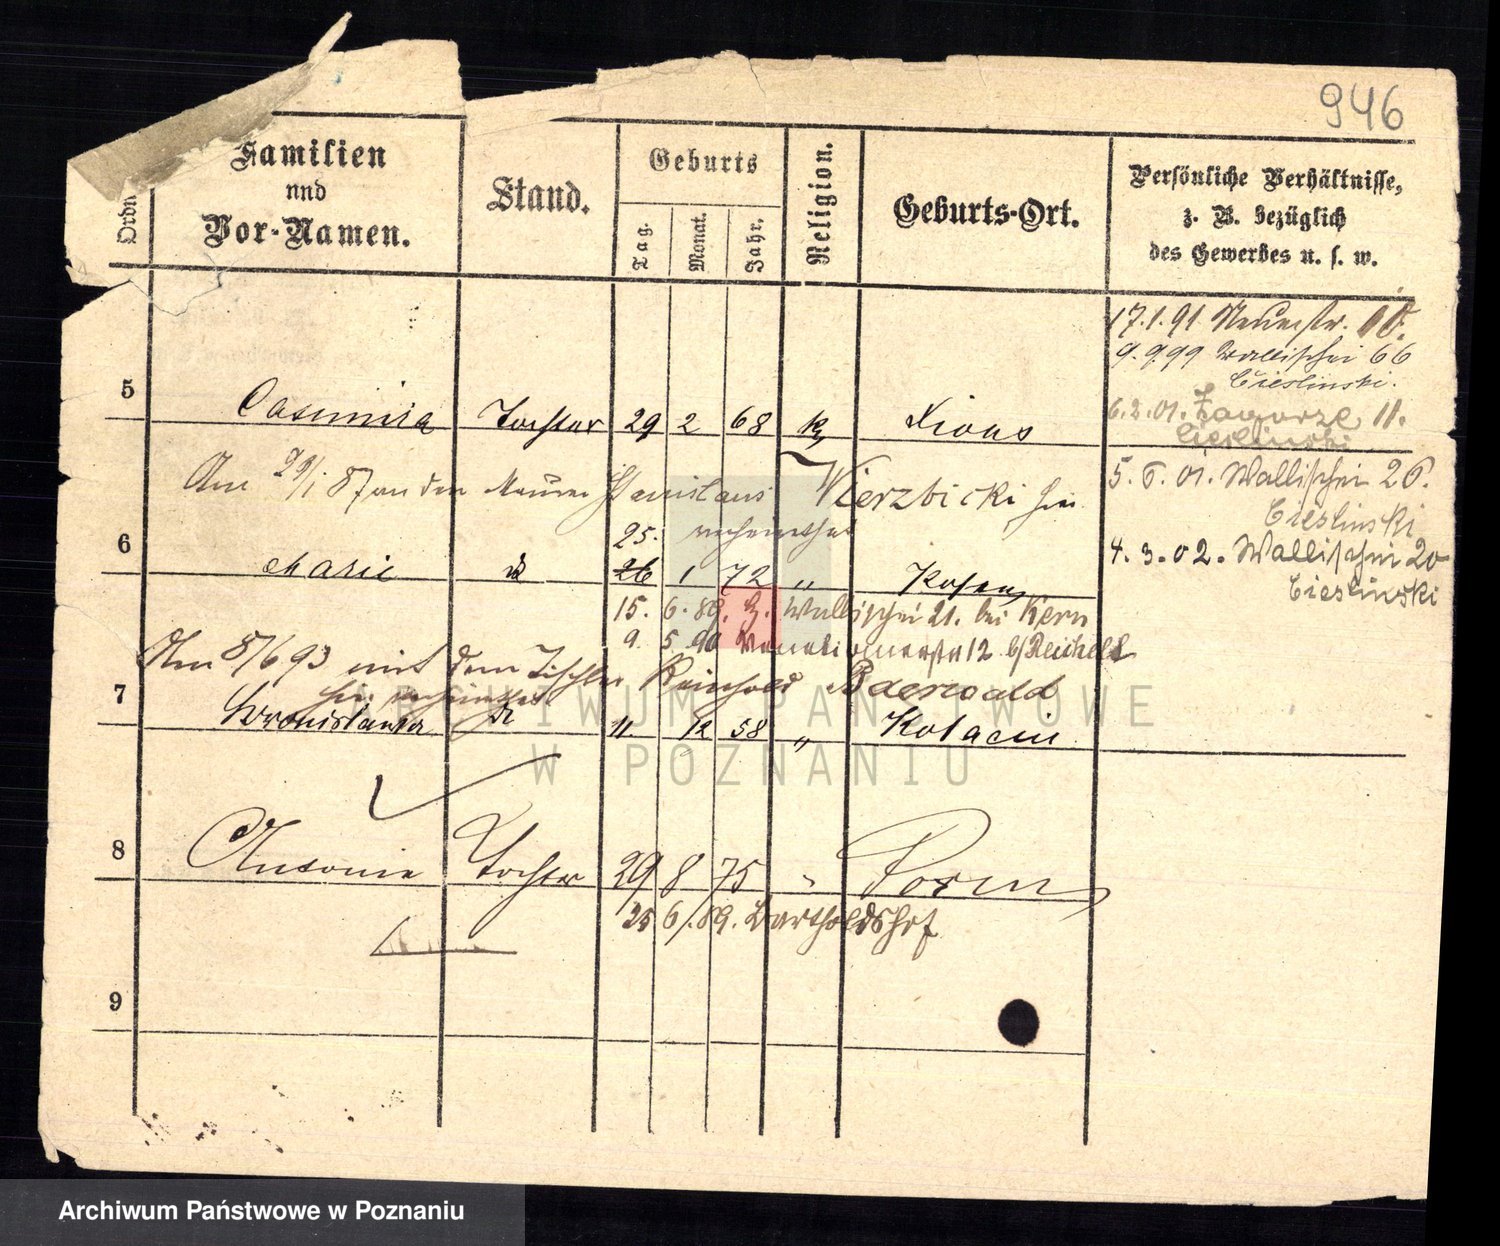 946
Ordn
Familien
und
Vor-Namen.
Stand.
Geburts
Tag.
Monat.
Jahr.
Religion.
Geburts-Ort.
Persönliche Verhältnisse,
z. B. bezüglich
des Gewerbes u. s. w.
17.1.91 Neuestr. 10.
9.9.99 Wallischei 66
Cieslinski.
5 Casimira Tochter 29 2 68 k Xions
6.2.01. Zaworze 11.
Cieslinski
Am 29/1 87 an den Maurer Stanislaus Wierzbicki hier
verheirathet
5.6.01. Wallischei 26.
Cieslinski
25.
6 Marie d 26 1 72 " Posen
4.3.02. Wallischei 20
Cieslinski
15. 6. 89. Wallischei 21. bei Kern
9. 5 90 12 b/ Reichelt
Am 8/6 93 mit dem Tischler Reinhold Baerwald
hier verheirathet
7 Bronislawa d 11. 12 58 " Kotacin
8 Antonie Tochter 29 8 75 "
25 6/. 89. Bartholdshof
9
ARCHIWUM PAŃSTWOWE
W POZNANIU
Archiwum Państwowe w Poznaniu